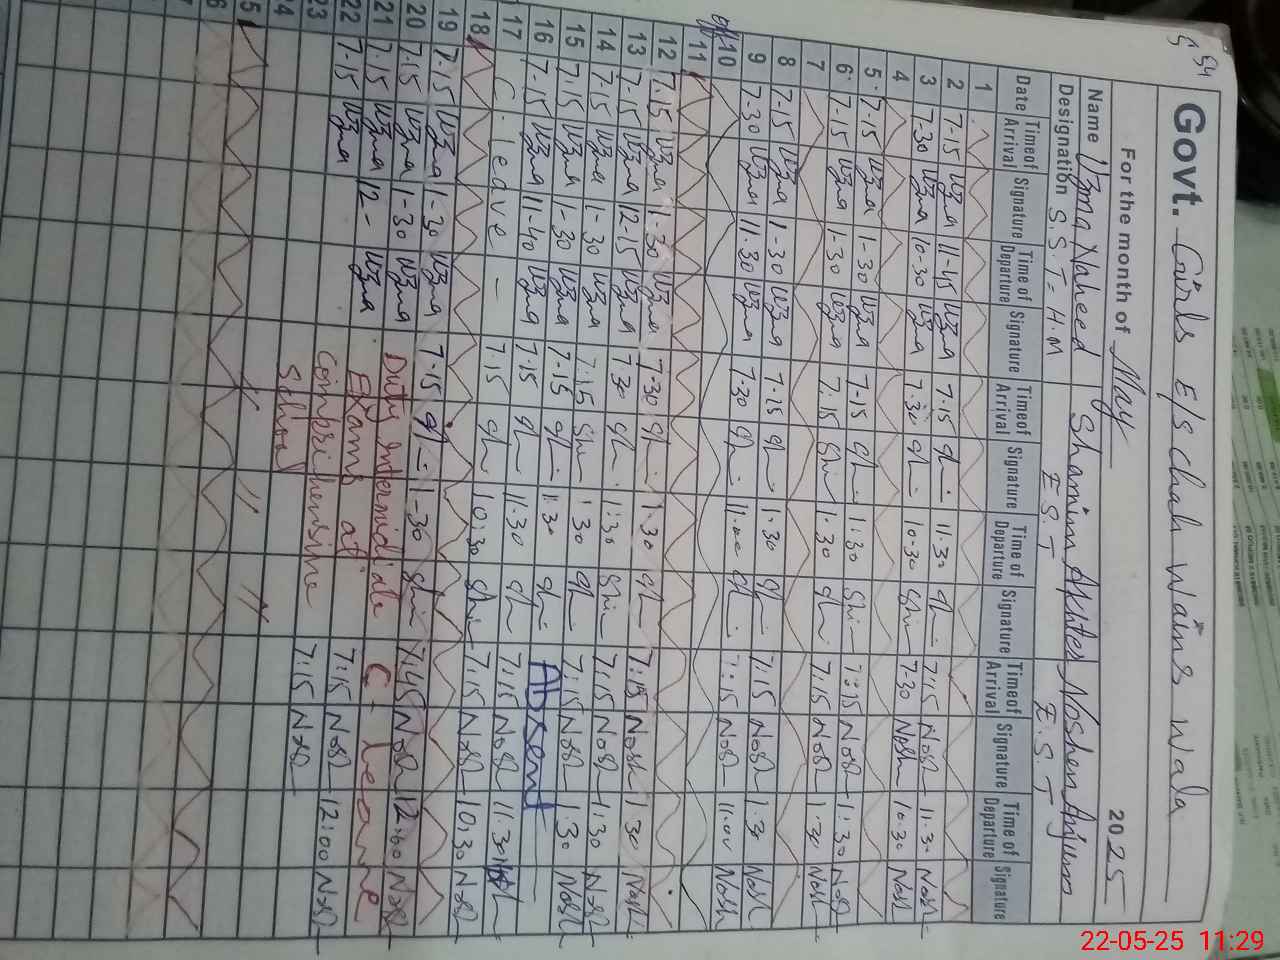 554
Govt. Girls E/S chah wains wala
For the month of May 2025
Name Uzma Naheed Shamim Akhter Noshen Anjum
Designation S.S.T = H.M E.S.T E.S.T
Date Time of Arrival Signature Time of Departure Signature Time of Arrival Signature Time of Departure Signature Time of Arrival Signature Time of Departure Signature
1
2 7-15 Uzma 11-45 Uzma 7.15 11.30 7:15 Nosh 11.30 Nosh
3 7.30 Uzma 10-30 Uzma 7.30 10.30 Shi 7-30 Nosh 10.30 Nosh
4
5 7-15 Uzma 1-30 Uzma 7-15 1.30 Shi 7:15 Nosh 1:30 Nosh
6 7-15 Uzma 1-30 Uzma 7.15 Shi 1.30 7:15 Nosh 1.30 Nosh
7
8 7-15 Uzma 1-30 Uzma 7-15 1.30 7:15 Nosh 1.30 Nosh
9 7-30 Uzma 11.30 Uzma 7.30 11.00 7:15 Nosh 11.00 Nosh
off 10
11
12 7.15 Uzma 1-30 Uzma 7-30 1.30 7:15 Nosh 1.30 Nosh
13 7-15 Uzma 12-15 Uzma 7.30 1:30 Shi 7:15 Nosh 1:30 Nosh
14 7-15 Uzma 1-30 Uzma 7:15 Shi 1:30 7:15 Nosh 1.30 Nosh
15 7.15 Uzma 1-30 Uzma 7-15 1:30 Absent
16 7-15 Uzma 11-40 Uzma 7-15 11.30 7:15 Nosh 11.30
17 C. leave - 7.15 10:30 Shi 7:15 Nosh 10:30 Nosh
18
19 7.15 Uzma 1-30 Uzma 7-15 1-30 Shi 7:45 Nosh 12:00 Nosh
20 7.15 Uzma 1-30 Uzma Duty intermidiate C- leave
21 7.15 Uzma 12- Uzma Exams at 7:15 Nosh 12:00 Nosh
22 7-15 Uzma Comprihensive 7:15 Nosh
23 School
24
22-05-25 11:29